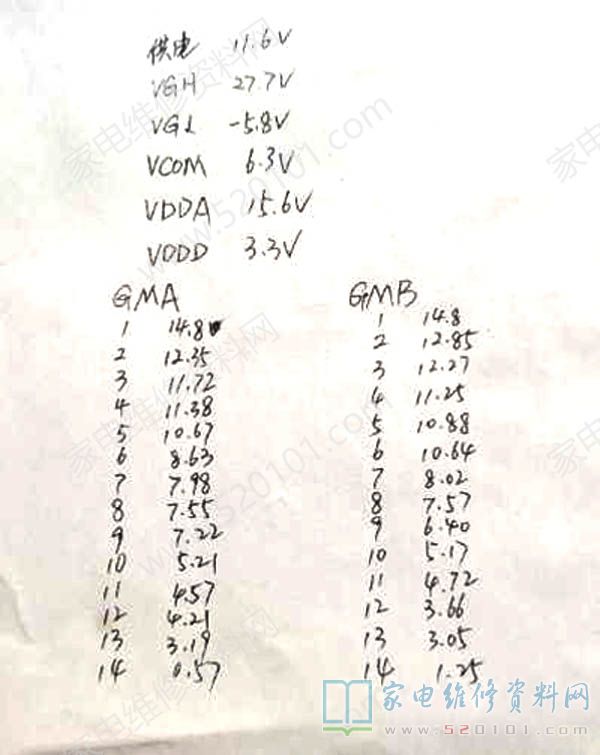 供电 11.6V
VGH 27.7V
VGL -5.8V
VCOM 6.3V
VDDA 15.6V
VDDD 3.3V
GMA
1 14.8
2 12.35
3 11.72
4 11.38
5 10.67
6 8.63
7 7.98
8 7.55
9 7.22
10 5.21
11 4.57
12 4.21
13 3.19
14 0.57
GMB
1 14.8
2 12.85
3 12.27
4 11.25
5 10.88
6 10.64
7 8.02
8 7.57
9 6.40
10 5.17
11 4.72
12 3.66
13 3.05
14 1.25
家电维修资料网
www.520101.com